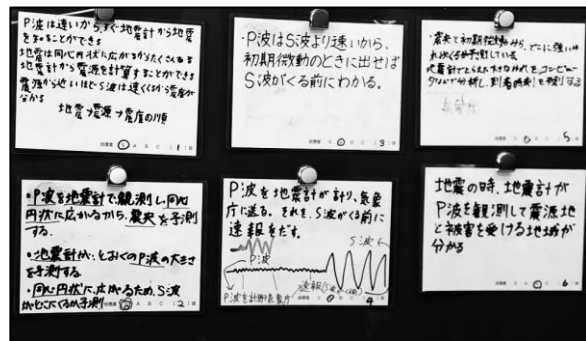 P波は速いから、すぐ地震計から地震
を知ることができる
地震は同心円状に広がるからたくさんある
地震計から震源を計算することができる
震源から近いほどS波は速くくるから震度が
分かる
地震→震源→震度の順
自信度 S A B C 1 班
P波はS波より速いから、
初期微動のときに出せば
S波がくる前にわかる。
自信度 S A B C 3 班
・震央と初期微動から、どこに強い揺
れがくるか予測している。
地震計でとらえた大きなゆれを、コンピュー
タなどで分析し、到着時刻を予測する
5
・P波を地震計で観測し、同心
円状に広がるから、震央を予測
する。
・地震計が、とおくのP波の大きさ
を予測する
・同心円状に広がるため、S波
がどこにくるか予測
2 班
P波を地震計が計り、気象
庁に送る。それを、S波がくる前に
速報をだす。
P波
S波
P波を計測
気象庁
速報
4 班
地震の時、地震計が
P波を観測して震源地
と被害を受ける地域が
分かる
自信度 S A B C 6 班